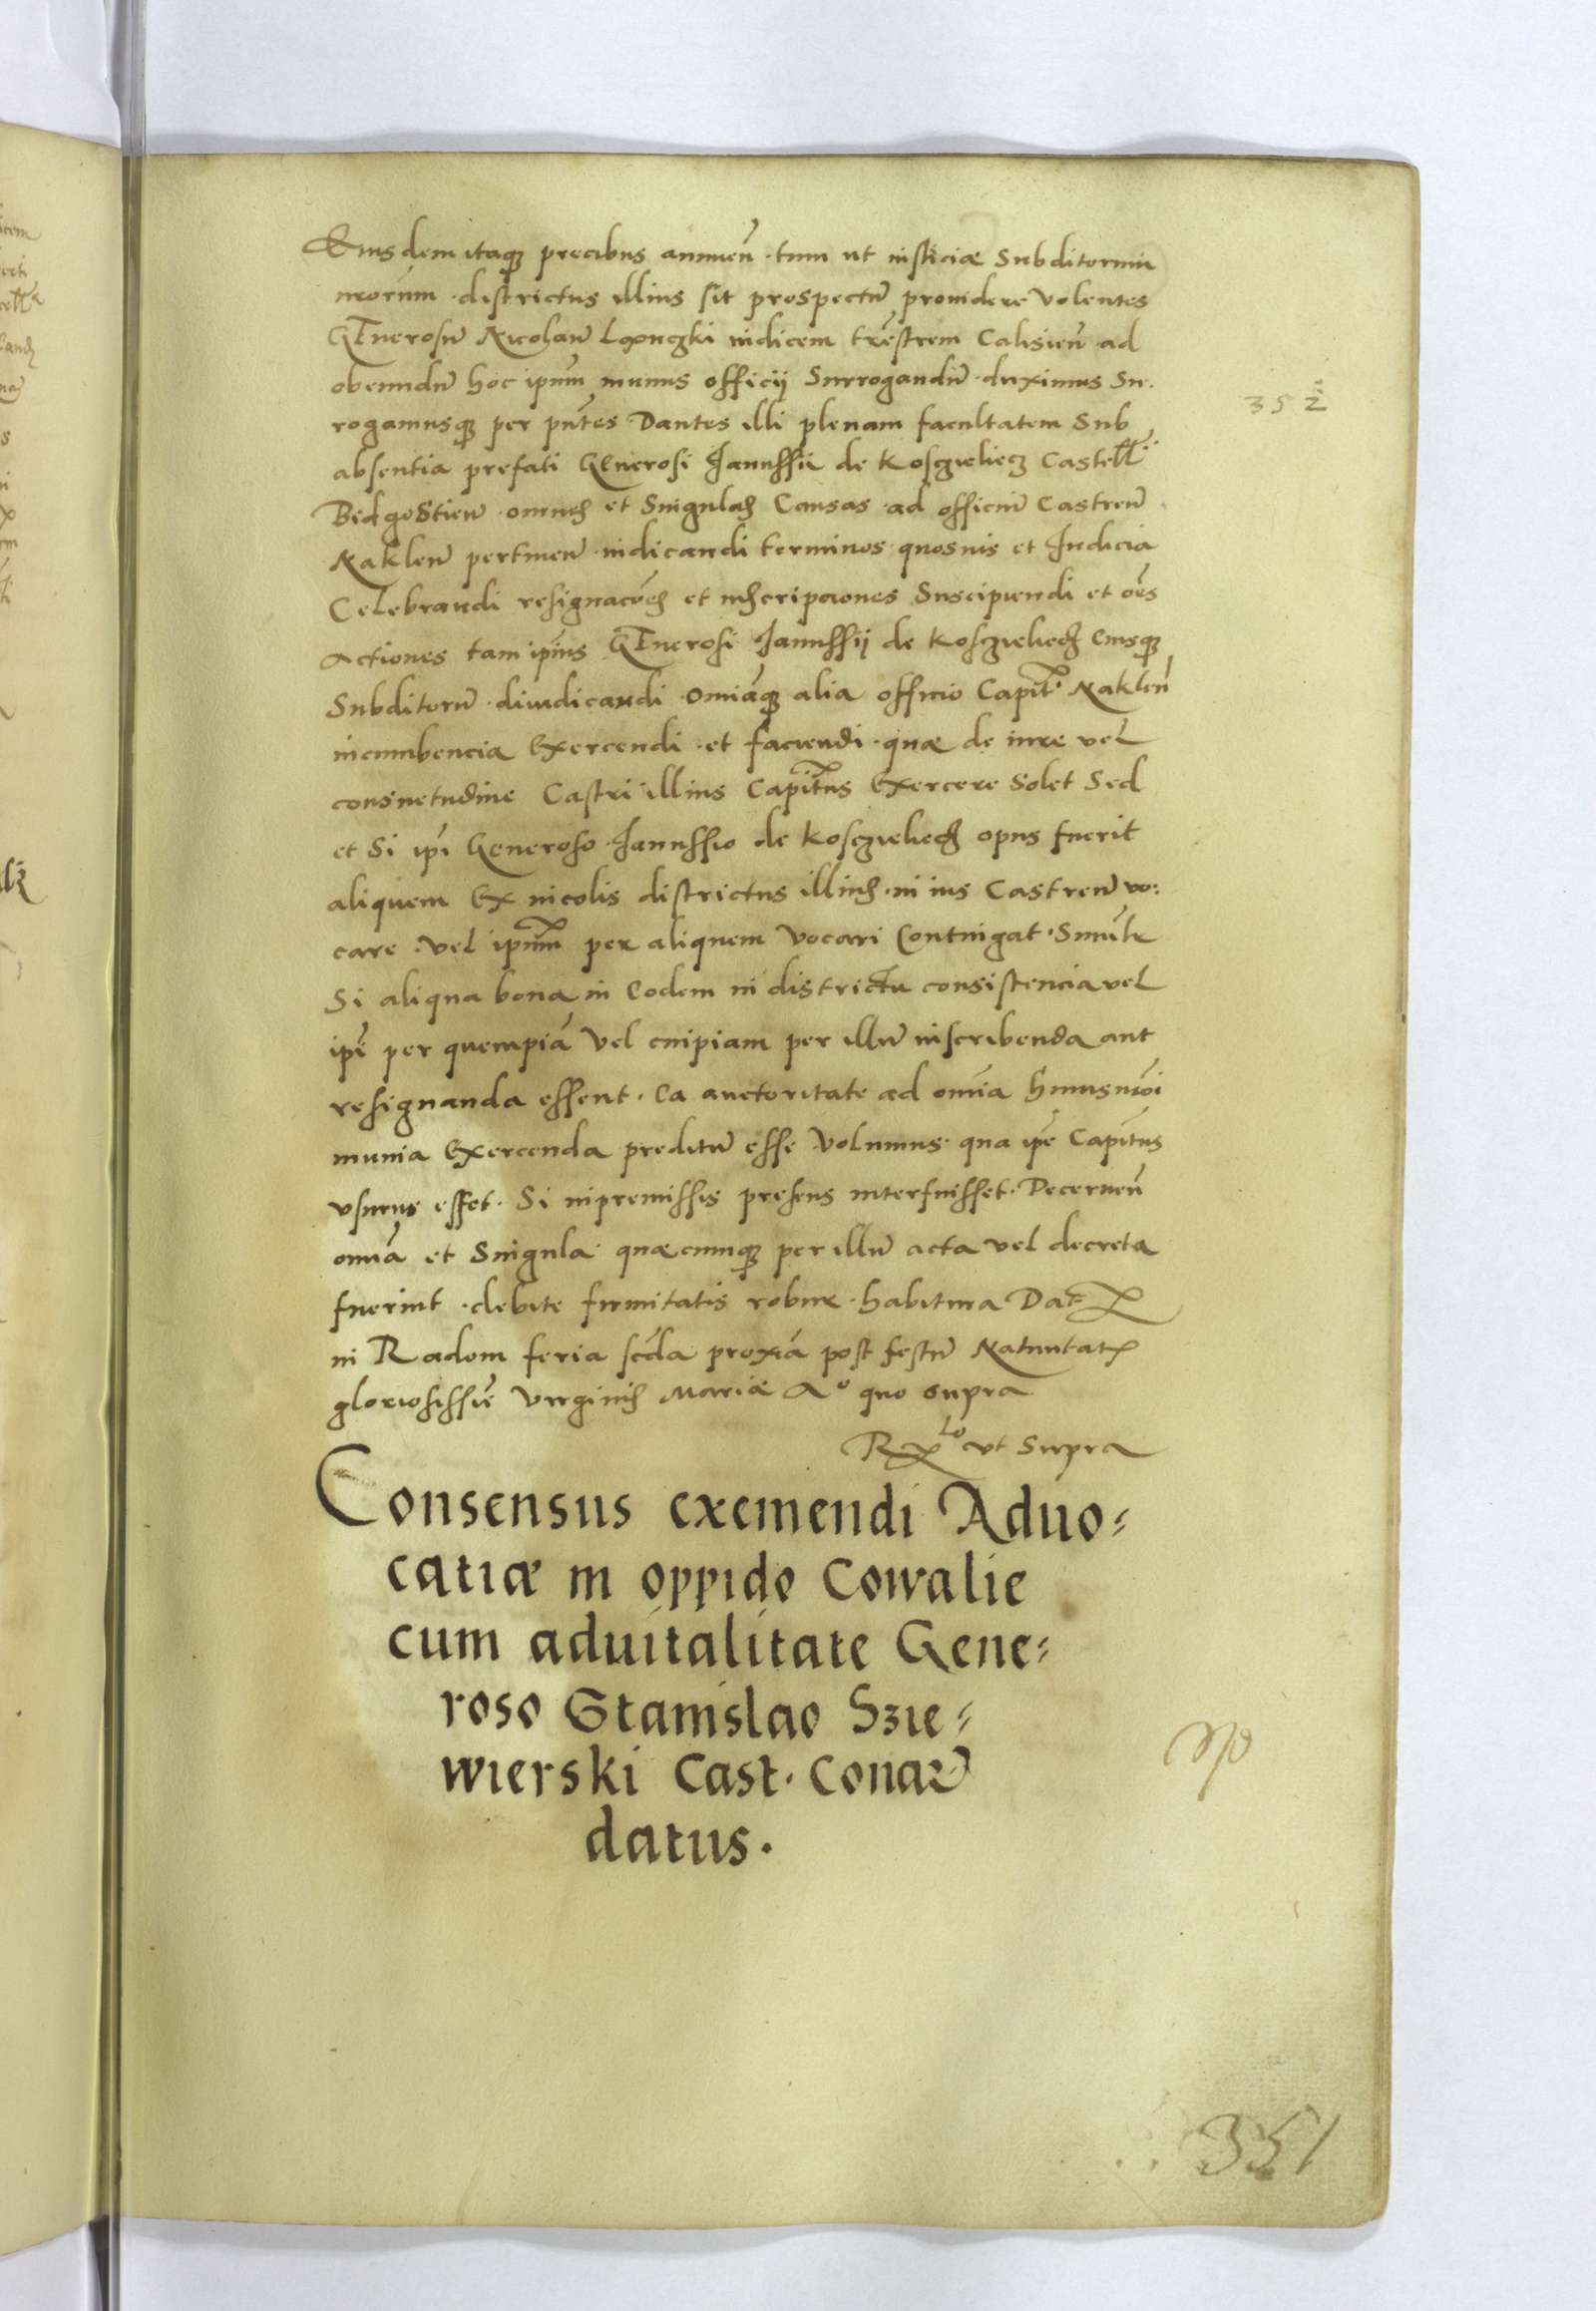 Eiusdem itaq₃ precibus annuen̄ · tum ut iusticiæ Subditorum
nrorum · districtus illius sit prospectū prouidere Volentes
GEnerosū Nicolaū Ląonczki iudicem trēstrem Calisien̄ ad
obeundū hoc ipnūm munus officij Surrogandū · duximus Su·
rogamusq₃ per pn̄tes Dantes illi plenam facultatem Sub
absentia prefati GEnerosi Janussii de Kosczielecz Castell̄·
Bidgostien̄ · omnes et Singulas Causas · ad officiū Castren̄
Naklen̄ pertinen̄ · iudicandi terminos · quosuis et Judicia
Celebrandi resignacōēs et inscripciones Suscipiendi et oēs
actiones tam ipīus GEnerosi Janussij de Kosczieliecz eiusq₃
Subditorū · diiudicandi · omiāq₃ alia officio Capit̄· Naklen̄
incumbencia Exercendi · et faciendi · quæ de iure vel
consuetudine Castri illius Capit̄us Exercere Solet Sed
et Si ip̄i Generoso · Janussio de Kosczieliecz opus fuerit
aliquem Ex incolis districtus illius · in ius Castren̄ vo:
care : vel ipnūm per aliquem Vocari Contingat · Simīlr
Si aliqua bona in Eodem in districtu consistencia vel
ip̄i per quempiā Vel cuipiam per illū inscribenda aut
resignanda essent · Ea auctoritate ad omīa huiusmōi
munia Exercenda preditū esse Volumus · qua ip̄e Capit̄us
vsurus esset · Si in premissis presens interfuisset · Decernen̄
omīa et Singula · quæcunq₃ per illū acta vel decreta
fuerint · debite firmitatis robur · habitura Dat̄
in Radom feria scd̄a proxīa post festū Natiuitatꝭ
gloriosissīe Virginis Mariæ Aᵒ quo supra
Rx ˡᵒ vt Supra
Consensus exemendi Aduo⸗
catiæ in oppido Cowalie
cum aduitalitate Gene⸗
roso Stanislao Szie⸗
wierski Cast. Conar̄
datus.
352
351